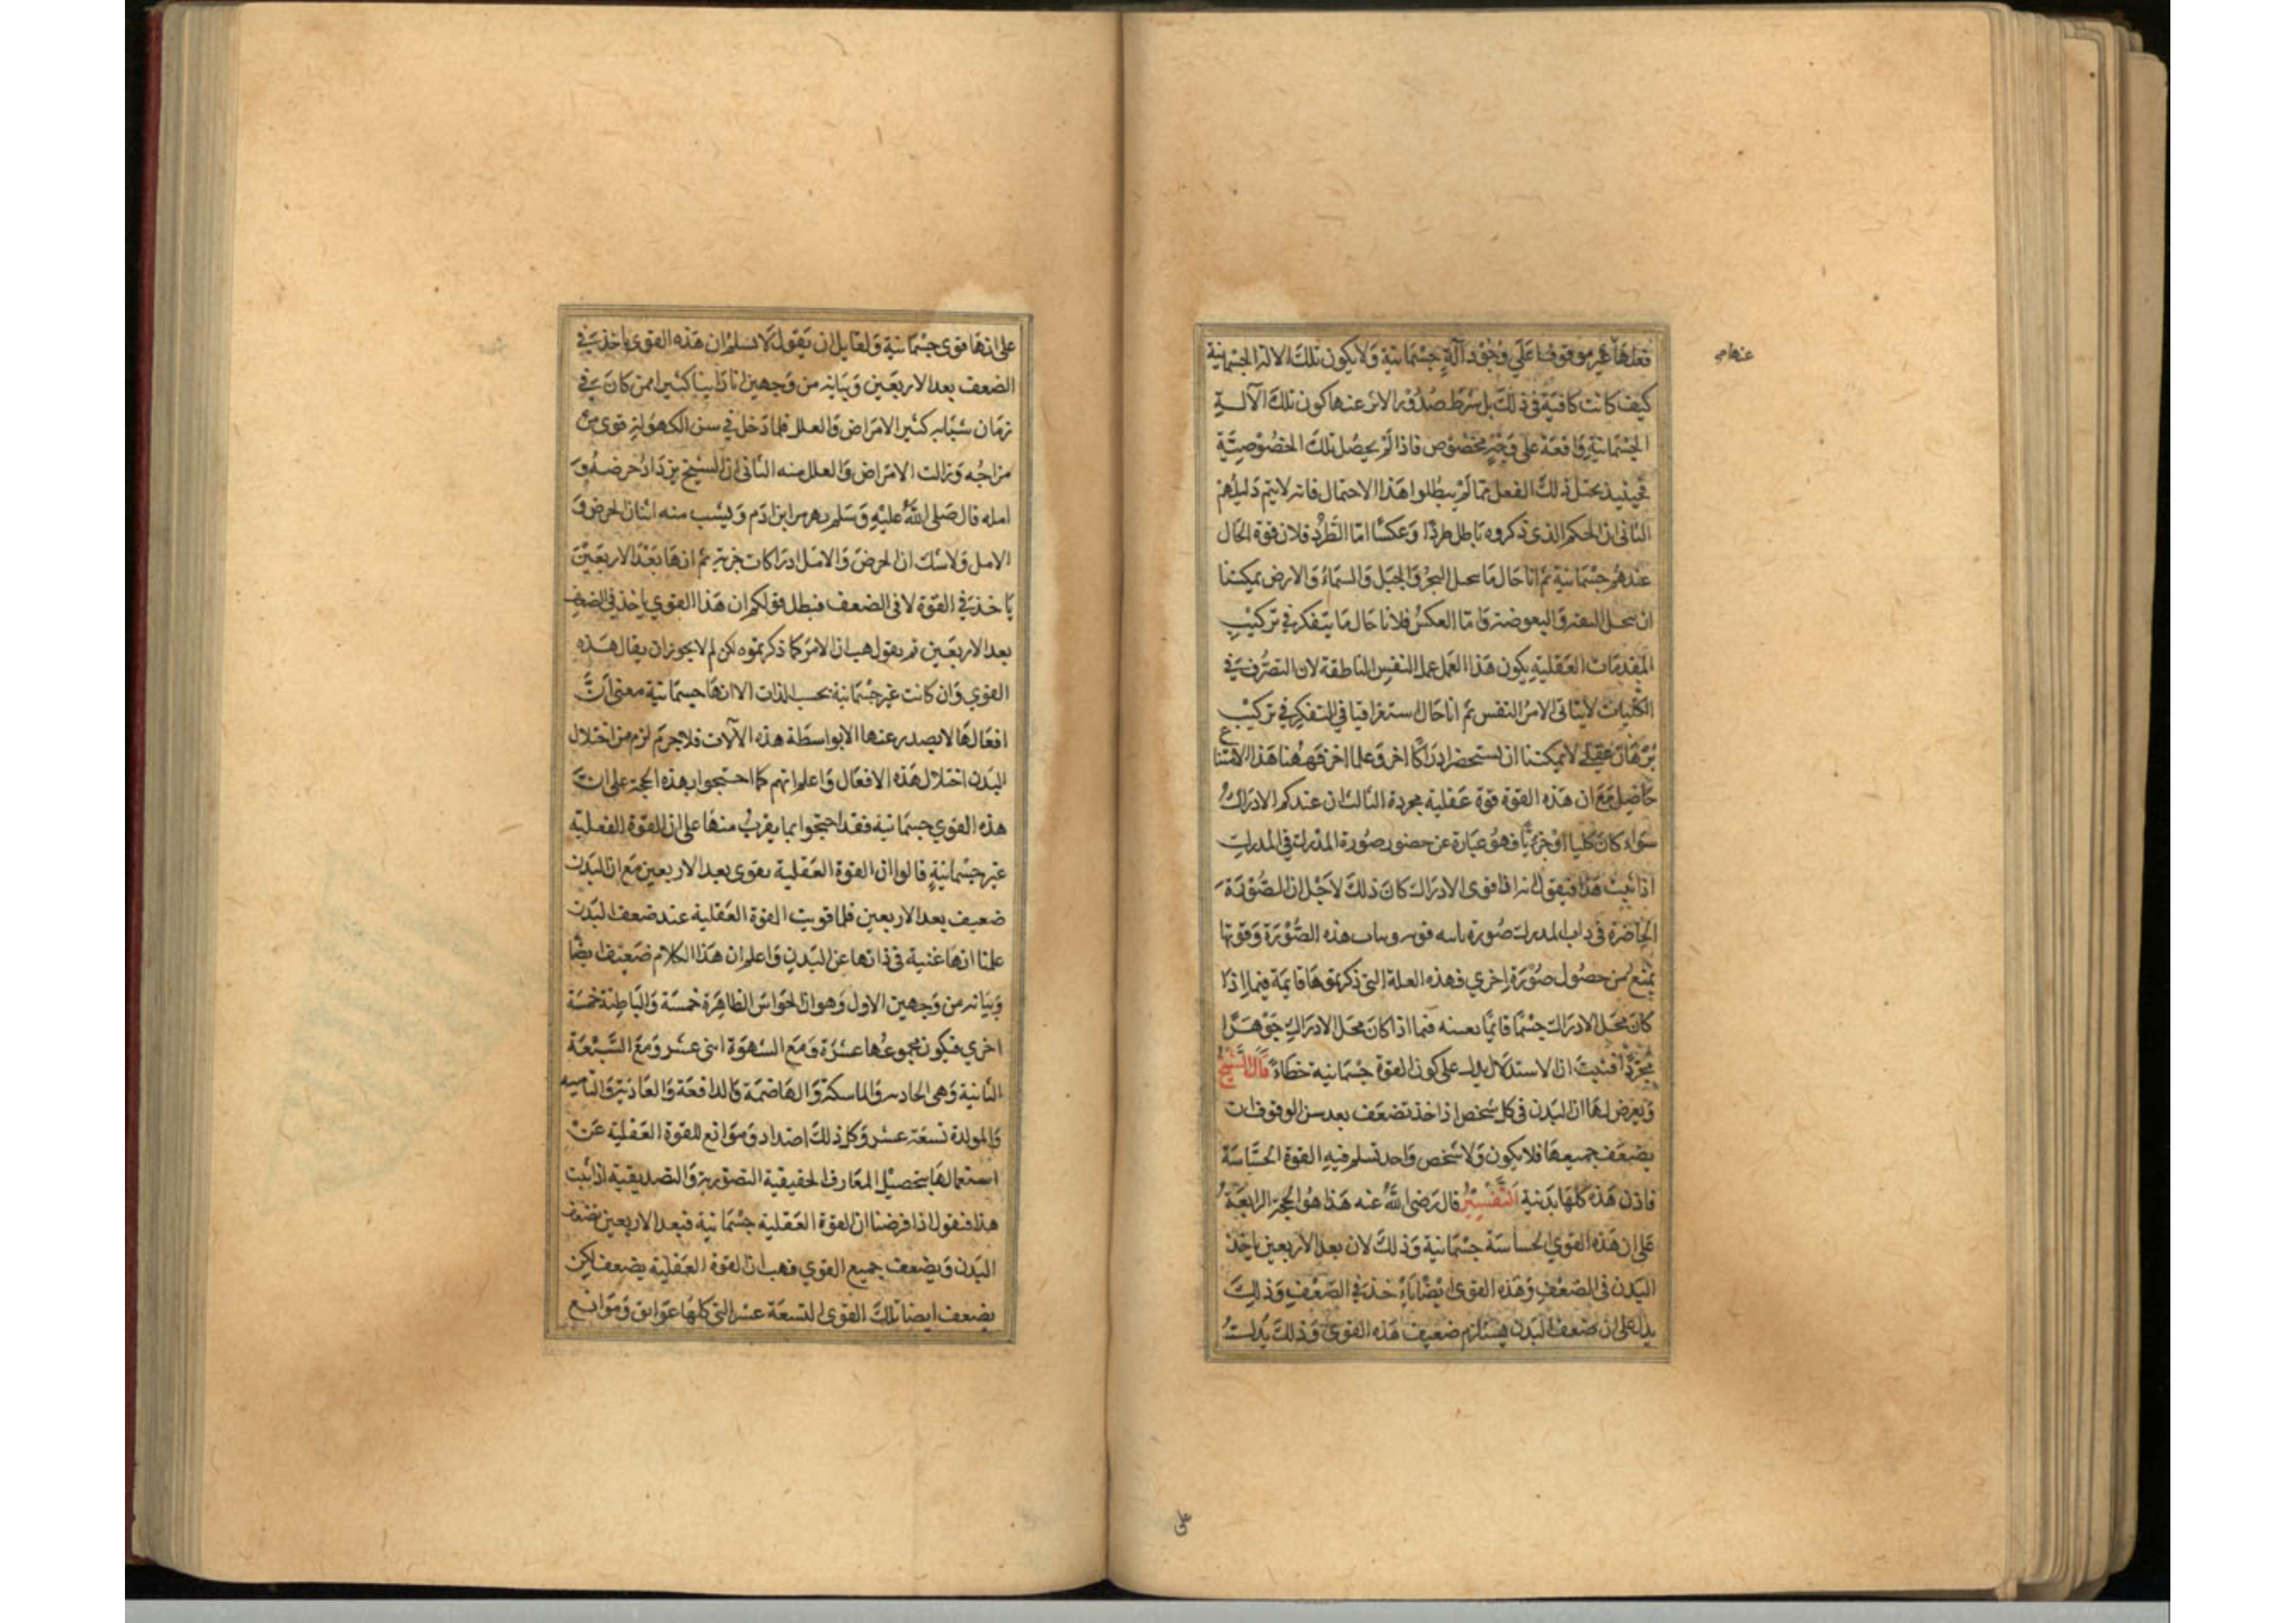 فعلها غير موقوف على وجود آلة جسمانية ولا يكون تلك الالة الجسمانية
عنها
كيف كانت كافية فى ذلك بل شرط صدور الاثر عنها كون تلك الآلة
الجسمانية واقعة على وجه مخصوص فاذا لم يحصل تلك الخصوصية
فحينيذ يختل ذلك الفعل فما لم يبطلوا هذا الاحتمال فانه لا يتم دليلهم
الثانى ان الحكم الذى ذكروه باطل طردا وعكسا اما الطرد فلان قوة الخيال
عندهم جسمانية ثم انا حال ما نتخيل البحر والجبل والسماء والارض يمكننا
ان نتخيل البقة والبعوضة واما العكس فلانا حال ما يتفكر فى تركيب
المقدمات العقلية يكون هذا العمل عمل النفس الناطقة لان التصرف فى
الكليات لا يتاتى الا من النفس ثم انا حال استغراقنا فى التفكر فى تركيب
برهان عقلى لا يمكننا ان نستحضر ادراكا اخر وعلما اخر فههنا هذا الامتناع
حاصل مع ان هذه القوة قوة عقلية مجردة الثالث ان عندكم الادراك
سواء كان كليا او جزئيا فهو عبارة عن حضور صورة المدرك فى المدرك
اذا ثبت هذا فنقول انه اذا قوى الادراك كان ذلك لاجل ان الصورة
الحاضرة فى ذات المدرك صورة هذه الصورة وقوتها
يمنع من حصول صورة اخرى فهذه العلة التى ذكرتموها قايمة فيما اذا
كان محل الادراك جسما قايما بعينه فيما اذا كان محل الادراك جوهرا
مجردا فثبت ان الاستدلال على كون القوة جسمانية خطاء قال الشيخ
ويعرض لها ان البدن فى كل شخص اذا اخذ تضعف بعد سن الوقوف ان
يضعف جميعها فلا يكون ولا شخص واحد تسلم فيه القوة الحساسة
فاذن هذه كلها بدنية التفسير قال رضى الله عنه هذا هو الحجة الرابعة
على ان هذه القوى الحساسة جسمانية وذلك لان بعد الاربعين ياخذ
البدن فى الضعف وهذه القوى ايضا ياخذ فى الضعف وذلك
يدل على ان ضعف البدن يستلزم ضعيف هذه القوى وذلك يدل
على
على انها قوى جسمانية ولقايل ان يقول لا نسلم ان هذه القوى ياخذ فى
الضعف بعد الاربعين وبيانه من وجهين انا راينا كثيرا ممن كان فى
زمان شبابه كثير الامراض والعلل فلما دخل فى سن الكهولة قوى من
مزاجه وزالت الامراض والعلل منه الثانى ان الشيخ يزداد حرصه و
امله قال صلى الله عليه وسلم يهرم ابن ادم ويشب منه اثنان الحرص و
الامل ولا شك ان الحرص والامل ادراكات جزئية ثم انها بعد الاربعين
ياخذ فى القوة لا فى الضعف فبطل قولكم ان هذا القوى ياخذ فى الضعف
بعد الاربعين ثم نقول هب ان الامر كما ذكرتموه لكن لم لا يجوز ان يقال هذه
القوى وان كانت غير جسمانية بحسب الذات الا انها جسمانية معنى ان
افعالها لا يصدر عنها الا بواسطة هذه الآلات فلا جرم لزم من اختلال
البدن اختلال هذه الافعال واعلم انهم كما احتجوا بهذه الحجة على ان
هذه القوى جسمانية فقد احتجوا بما يقرب منها على ان للقوة الفعلية
غير جسمانية قالوا ان القوة العقلية تقوى بعد الاربعين مع ان البدن
ضعيف بعد الاربعين فلما قويت القوة العقلية عند ضعف البدن
علمنا انها غنية فى ذاتها عن البدن واعلم ان هذا الكلام ضعيف ايضا
وبيانه من وجهين الاول وهو ان الحواس الظاهرة خمسة والباطنة خمسة
اخرى فيكون مجموعها عشرة ومع الشهوة اثنى عشر ومع السبعة
الثانية وهى الجاذبه والماسكة والهاضمة والدافعة والغاذية والناميه
والمولدة تسعة عشر وكل ذلك اضداد وموانع للقوة العقلية عن
استعمالها بتحصيل المعارف الحقيقية التصورية والتصديقية اذا ثبت
هذا فنقول اذا فرضنا ان القوة العقلية جسمانية فبعد الاربعين تضعف
البدن ويضعف جميع القوى فهب ان القوة العقلية يضعف لكن
يضعف ايضا تلك القوى التسعة عشر التى كلها عوايق وموانع